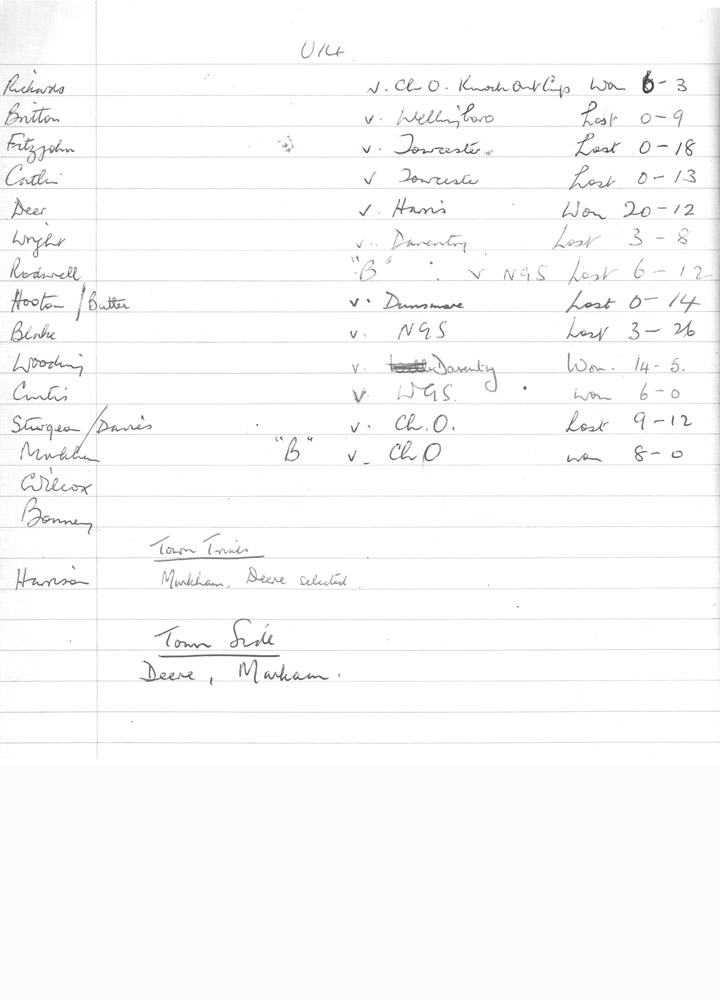 U14
Richards v. Ch O. Knock Out Cup Won 6-3
Britton v. Wellingboro Lost 0-9
Fitzjohn v. Towcester. Lost 0-18
Catlin v Towcester Lost 0-13
Deer v. Harris Won 20-12
Wright v. Daventry Lost 3-8
Rodwell "B" v NGS Lost 6-12
Hooton/Butter v. Dunsmore Lost 0-14
Blake v. NGS Lost 3-26
Wooding v. Daventry Won. 14-5.
Curtis v. WGS. won 6-0
Sturgess/Davies v. Ch.O. Lost 9-12
Markham "B" v. Ch O won 8-0
Wilcox
Bonney
Town Trials
Harrison Markham, Deere selected
Town Side
Deere, Markam.